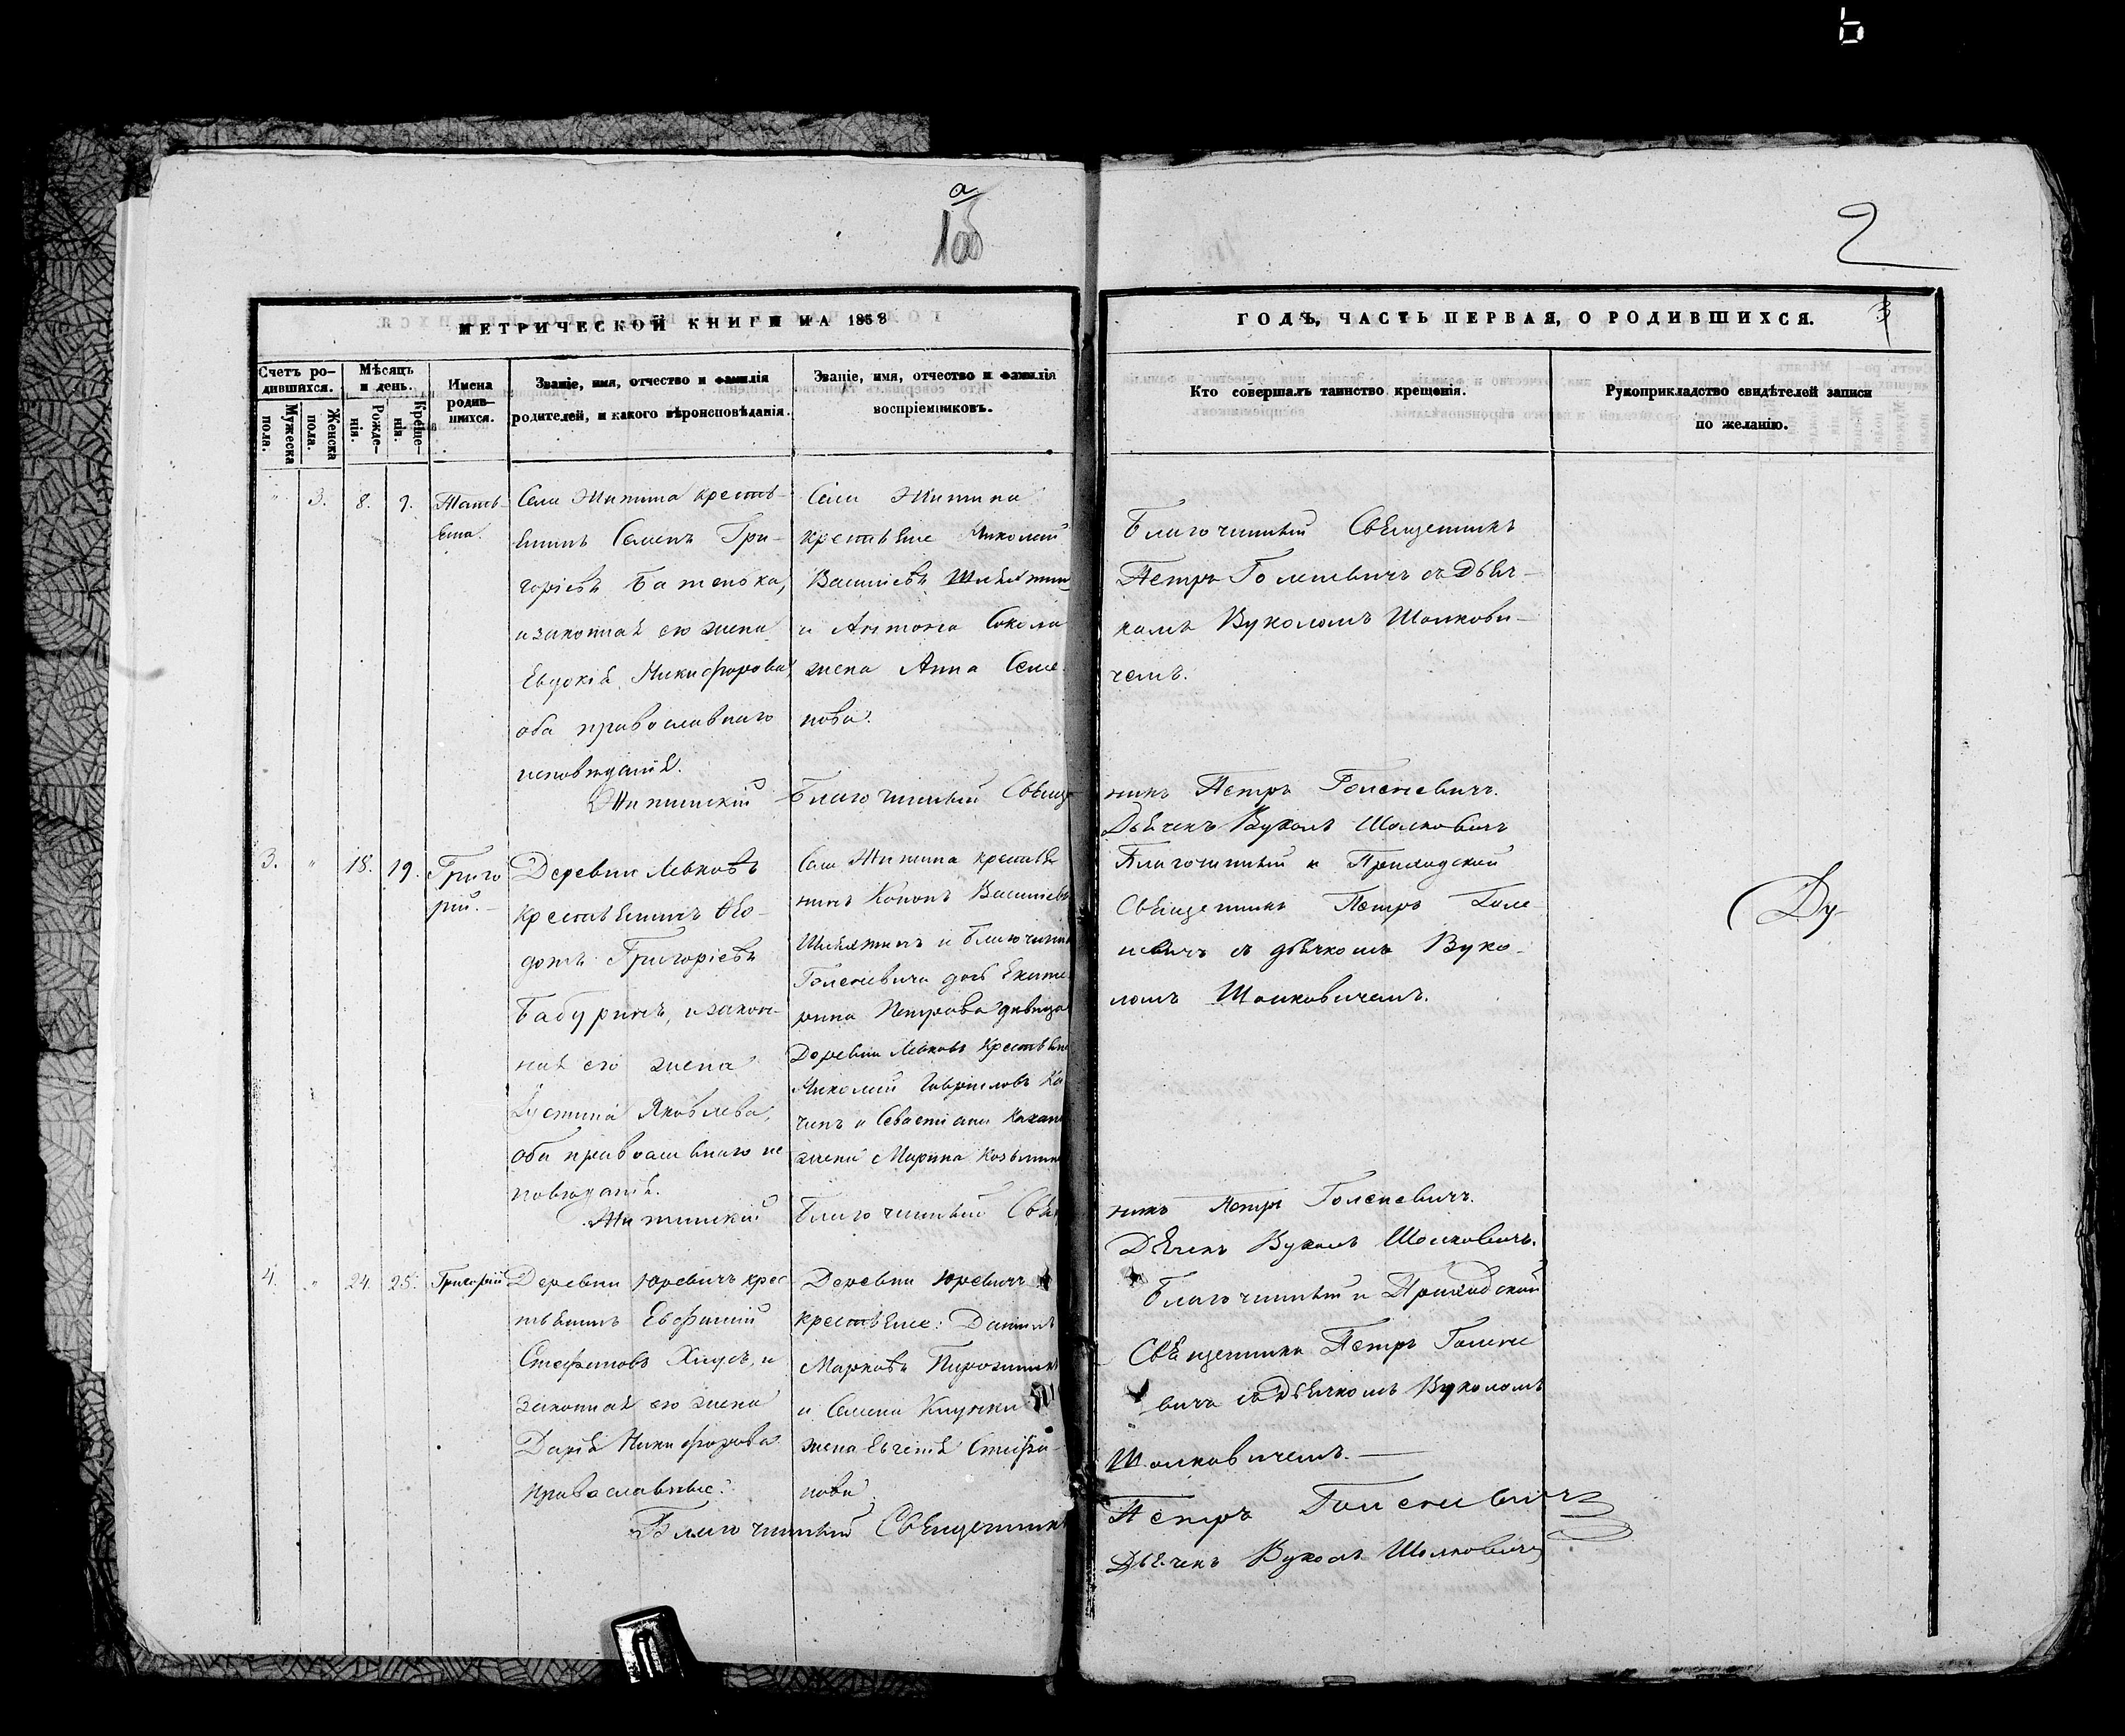 а
1об
2
3
МЕТРИЧЕСКОЙ КНИГИ НА 1858
ГОДЪ, ЧАСТЬ ПЕРВАЯ, О РОДИВШИХСЯ.
Счетъ ро-
дившихся.
Мужеска
пола.
Женска
пола.
Мѣсяцъ
и день.
Рожде-
нія.
Креще-
нія.
Имена
родив-
шихся.
Званіе, имя, отчество и фамилія
родителей, и какого вѣроисповѣданія.
Званіе, имя, отчество и фамилія
воспріемниковъ.
Кто совершалъ таинство крещенія.
Рукоприкладство свидѣтелей записи
по желанію.
" 3. 8. 9.
Тать
яна.
Села Житина кресть-
янинъ Семенъ Гри-
горіевъ Батенька,
и законная его жена
Евдокія Никифорова,
оба православнаго
исповѣданія.
Села Житина
крестьяне Николай
Василіевъ
и Антона Сокола
жена Анна Семе-
нова.
Благочинный Священникъ
Петръ Голеневичъ съ Дьяч-
комъ Вуколомъ Шолкови-
чемъ.
Житинскій Благочинный Свяще
никъ Петръ Голеневичъ.
Дьячекъ Вуколъ Шолковичъ
3. " 18. 19.
Григо
рій.
Деревни Левковъ
крестьянинъ Ѳео-
дотъ Григоріевъ
Бабуринъ, и закон-
ная его жена
Іустина Яковлева,
оба православнаго ис
повѣданія.
Села Житина крестья
нинъ Кононъ Василіевъ
и Благочинн
Голеневича дочь Екате
рина Петрова дѣвица
Деревни Левковъ Крестьяне
Николай Гавриловъ Ка
чанъ и Севастіана Качана
жена Марина Козьмина
Благочинный и Приходскій
Священникъ Петръ Голе
невичъ съ дьячкомъ Вуко-
ломъ Шолковичемъ.
Ду
Житинскій Благочинный Свя
никъ Петръ Голеневичъ.
Дьячекъ Вуколъ Шолковичъ.
4. " 24. 25.
Григорій
Деревни Юревичъ крес
тьянинъ Евфимій
Стефановъ Хицъ, и
законная его жена
Дарія Никифорова
православные.
Деревни Юревичъ
крестьяне: Даніилъ
Марковъ
и Семена
жена Евгенія Стефа-
нова
Благочинный и Приходскій
Священникъ Петръ Голене
вичъ съ Дьячкомъ Вуколомъ
Шолковичемъ. —
Благочинный Священникъ
Петръ Голеневичъ
Дьячекъ Вуколъ Шолковичъ